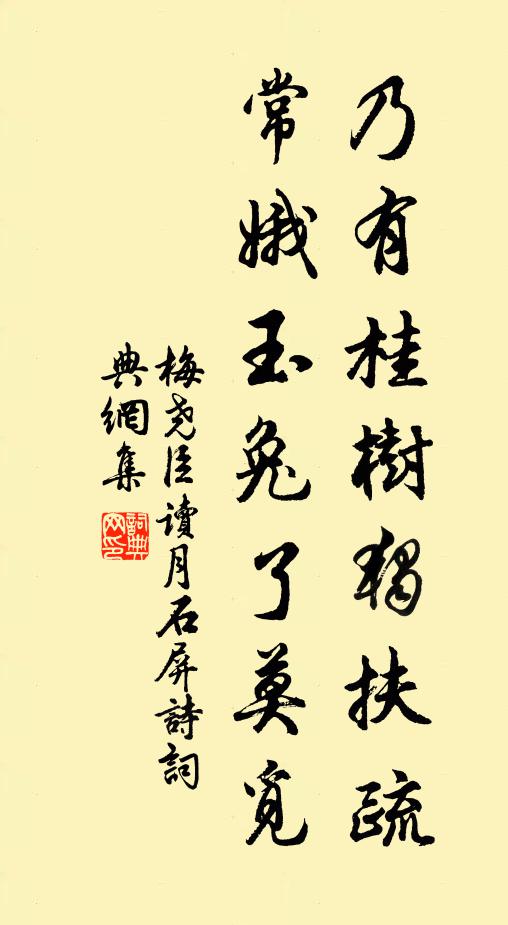 乃有桂樹獨扶疏
常娥玉兔了莫覓
梅堯臣讀月石屏詩詞
典網集
詞典網印